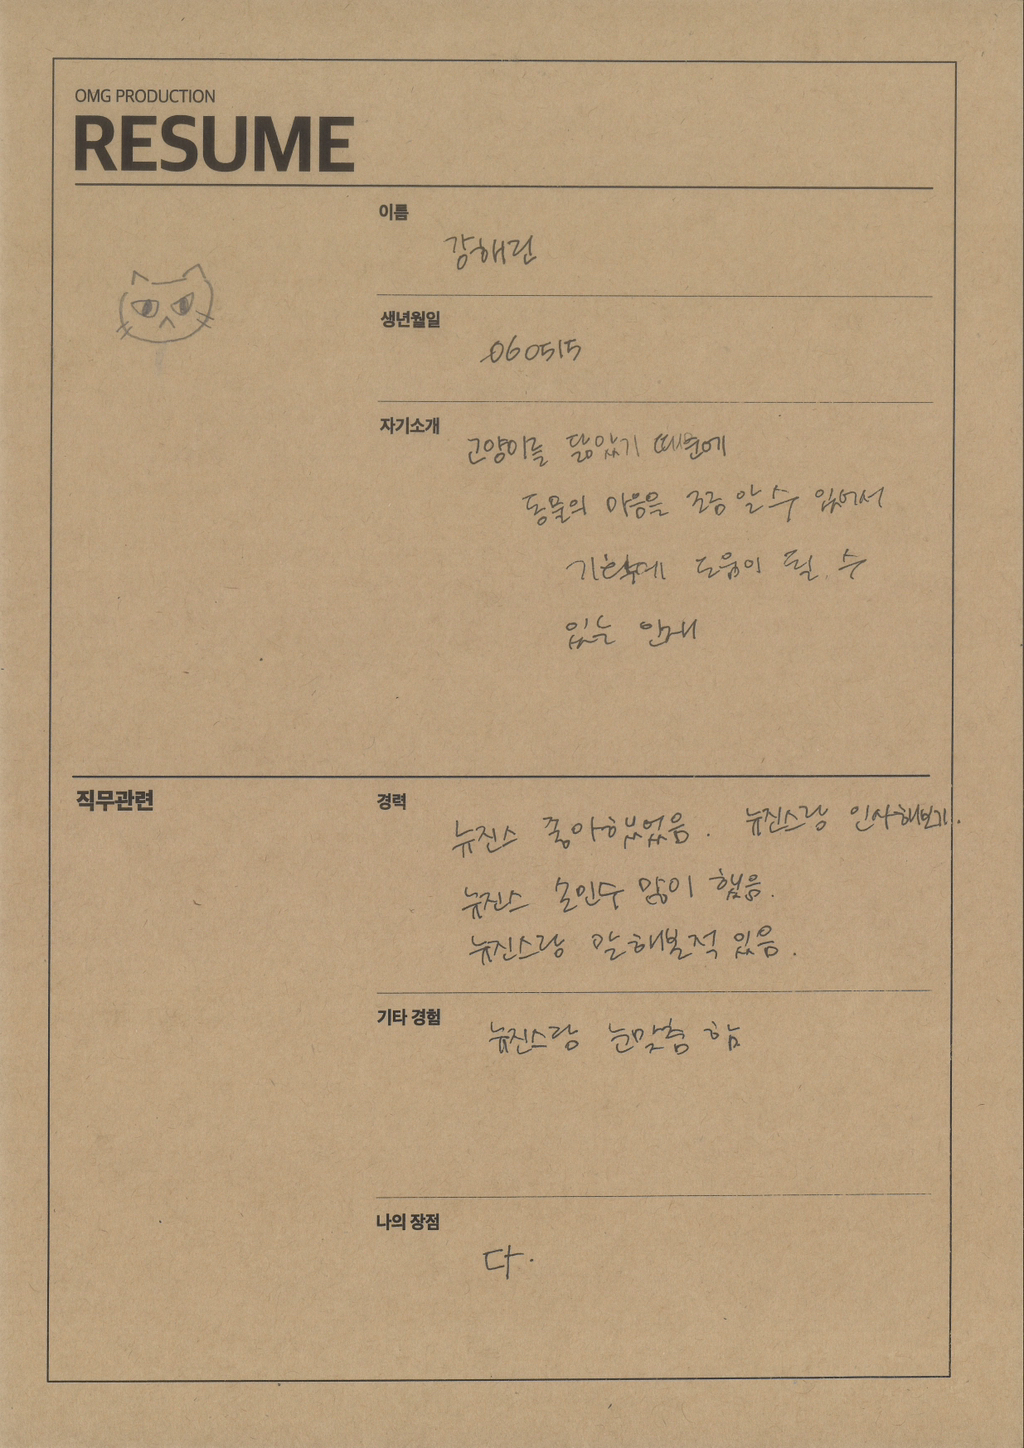 OMG PRODUCTION
RESUME
이름
강해린
생년월일
060515
자기소개
고양이를 닮았기 때문에
동물의 마음을 조금 알 수 있어서
도움이 될 수
있는 인재
직무관련
경력
뉴진스 좋아했었음. 뉴진스랑 인사해보기.
뉴진스 손민수 많이 했음.
뉴진스랑 말해본적 있음.
기타 경험
뉴진스랑 눈맞춤 함
나의 장점
다.